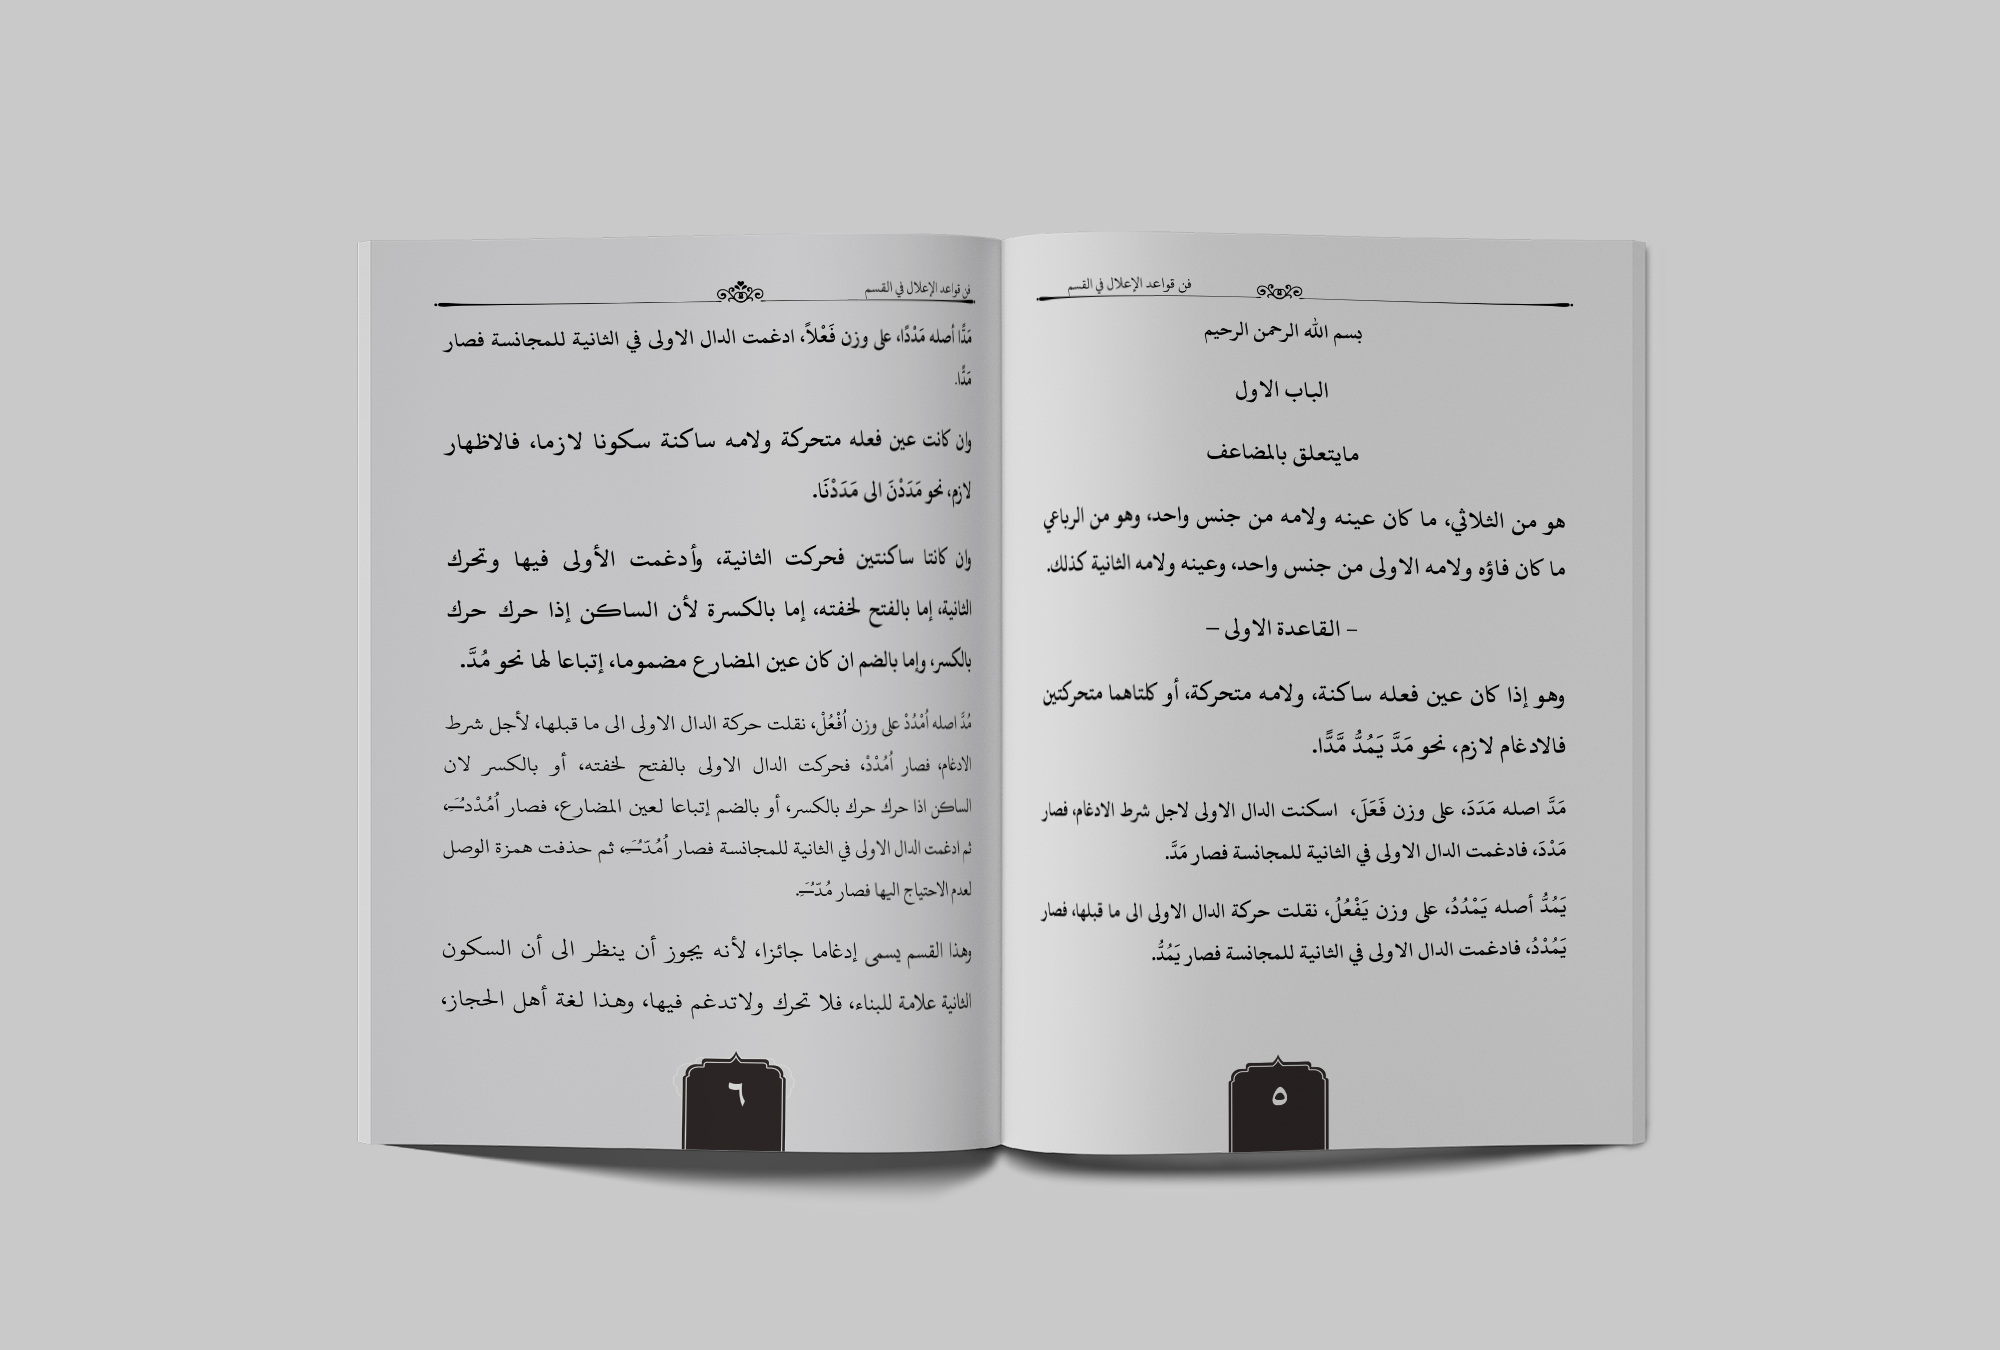 فن قواعد الإعلال في القسم
بسم الله الرحمن الرحيم
الباب الاول
مايتعلق بالمضاعف
هو من الثلاثي، ما كان عينه ولامه من جنس واحد، وهو من الرباعي
ما كان فاؤه ولامه الاولى من جنس واحد، وعينه ولامه الثانية كذلك.
– القاعدة الاولى –
وهو إذا كان عين فعله ساكنة، ولامه متحركة، أو كلتاهما متحركتين
فالادغام لازم، نحو مَدَّ يَمُدُّ مَّدًّا.
مَدَّ اصله مَدَدَ، على وزن فَعَلَ، اسكنت الدال الاولى لاجل شرط الادغام، فصار
مَدْدَ، فادغمت الدال الاولى في الثانية للمجانسة فصار مَدَّ.
يَمُدُّ أصله يَمْدُدُ، على وزن يَفْعُلُ، نقلت حركة الدال الاولى الى ما قبلها، فصار
يَمُدْدُ، فادغمت الدال الاولى في الثانية للمجانسة فصار يَمُدُّ.
٥
فن قواعد الإعلال في القسم
مَدًّا أصله مَدْدًا، على وزن فَعْلاً، ادغمت الدال الاولى في الثانية للمجانسة فصار
مَدًّا.
وان كانت عين فعله متحركة ولامه ساكنة سكونا لازما، فالاظهار
لازم، نحو مَدَدْنَ الى مَدَدْنَا.
وان كانتا ساكنتين فحركت الثانية، وأدغمت الأولى فيها وتحرك
الثانية، إما بالفتح لخفته، إما بالكسرة لأن الساكن إذا حرك حرك
بالكسر، وإما بالضم ان كان عين المضارع مضموما، إتباعا لها نحو مُدَّ.
مُدَّ اصله اُمْدُدْ على وزن اُفْعُلْ، نقلت حركة الدال الاولى الى ما قبلها، لأجل شرط
الادغام، فصار اُمُدْدْ، فحركت الدال الاولى بالفتح لخفته، أو بالكسر لان
الساكن اذا حرك حرك بالكسر، أو بالضم إتباعا لعين المضارع، فصار اُمُدْدـَُِـ،
ثم ادغمت الدال الاولى في الثانية للمجانسة فصار اُمُدّـَُِـ، ثم حذفت همزة الوصل
لعدم الاحتياج اليها فصار مُدّـَُِـ.
وهذا القسم يسمى إدغاما جائزا، لأنه يجوز أن ينظر الى أن السكون
الثانية علامة للبناء، فلا تحرك ولاتدغم فيها، وهذا لغة أهل الحجاز،
٦